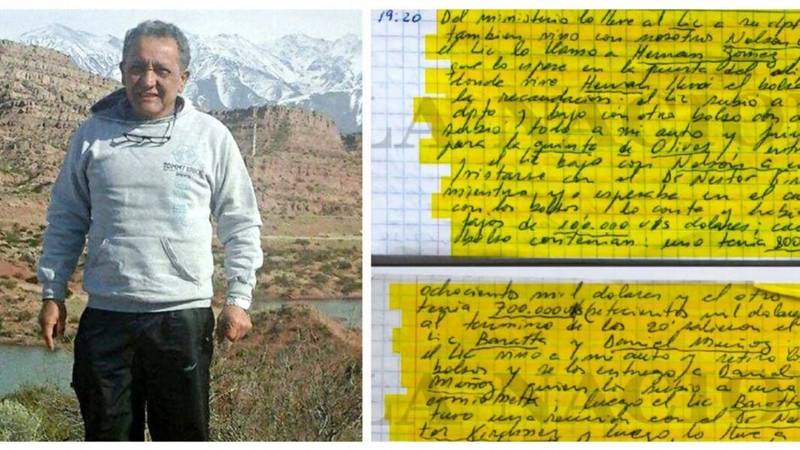 TOMMY
19:20 Del ministerio lo lleve al Lic a su dpto
tambien vino con nosotros Nelson
el Lic lo llamo a Hernan Gomez
que lo espere en la puerta del
donde vivo Hernan llevó el bolso
la recaudacion: el Lic subio a
dpto y bajo con otro bolso
subio todo a mi auto y
para la quinta de Olivos
el Lic bajo con Nelson a
con el Dr Nestor
mientras yo esperaba en el
con los bolsos lo conte y habia
fajos de 100.000 U$S dolares, cada
bolso contenian: uno tenia 800
ochociento mil dolares y el otro
tenia 700.000 U$S setecientos mil dolares
al termino de los 20' salieron el
Lic Baratta y Daniel Muñoz
el Lic vino a mi auto y retiro
bolsos y se los entrego a Daniel
Muñoz, quien los subio a una
camioneta, luego el Lic Baratta
tuvo una reunion con el Dr Nes-
tor Kirchner y luego lo lleve a
LA NACION
LA NACION